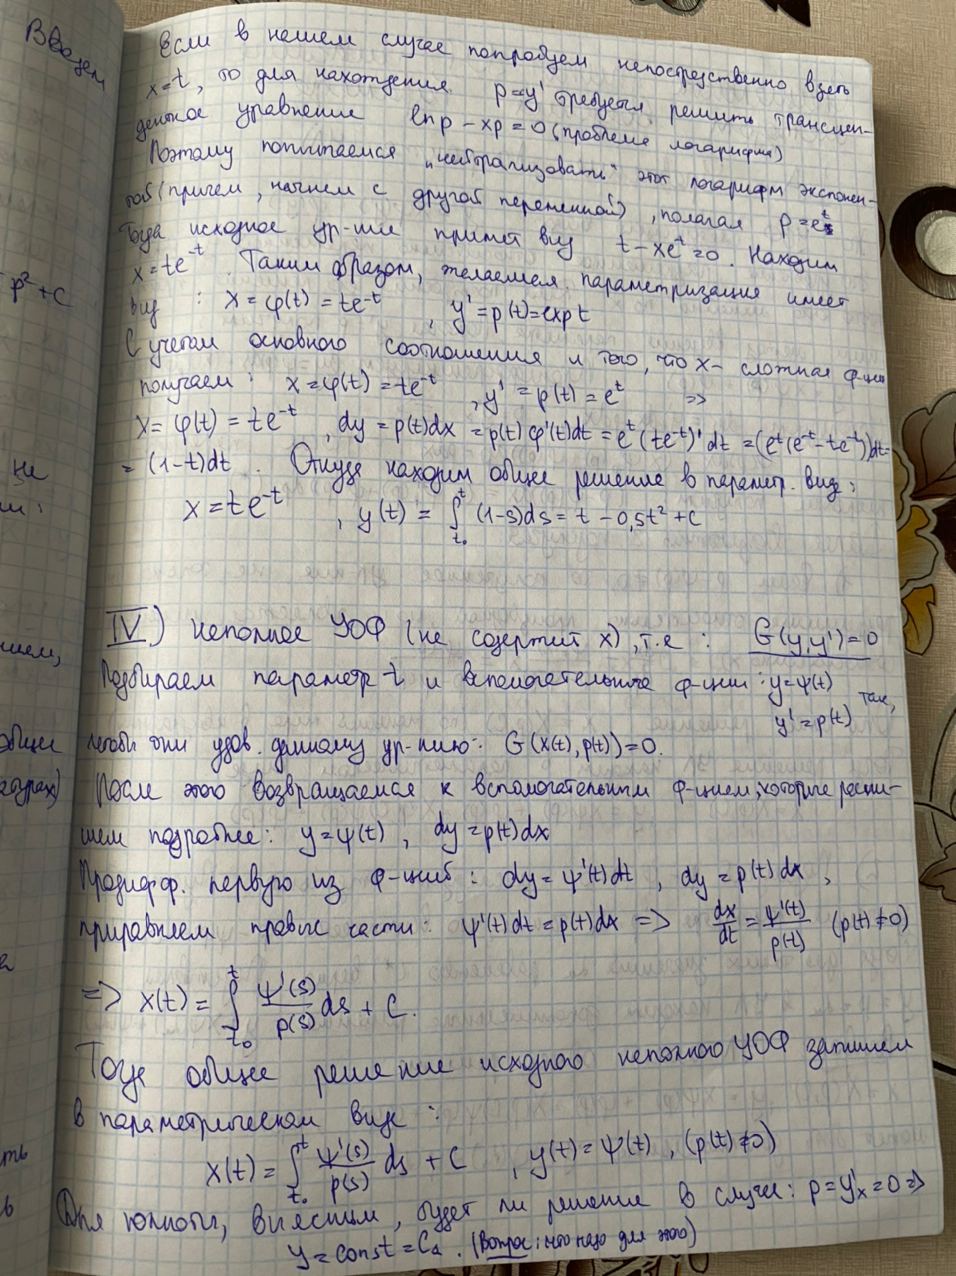 Введем
Если в нашем случае попробуем непосредственно взять
x=t, то для нахождения p=y' требуется решить трансцен-
дентное уравнение ln p − xp = 0 (проблема логарифма)
Поэтому попытаемся "нейтрализовать" этот логарифм экспонен-
той (причем, начнем с другой переменной), полагая p=e^t
Тогда исходное ур-ние примет вид t − xe^t = 0. Находим
x = te^-t. Таким образом, желаемая параметризация имеет
p²+C
вид : x = φ(t) = te^-t , y' = p(t) = exp t
С учетом основного соотношения и того, что x- сложная ф-ция
получаем : x = φ(t) = te^-t , y' = p(t) = e^t =>
x = φ(t) = te^-t , dy = p(t)dx = p(t) φ'(t)dt = e^t (te^-t)' dt = (e^t(e^-t − te^-t))dt=
не
= (1−t)dt . Откуда находим общее решение в парамет. виде :
x = te^-t , y(t) = ∫_{t₀}^{t} (1−s)ds = t − 0,5t² + C
IV.) неполное УОФ (не содержит x), т.е : G(y,y') = 0
Подбираем параметр t и вспомогательные ф-ции : y=ψ(t)
y' = p(t) так,
чтобы они удов. данному ур-нию : G(x(t), p(t)) = 0.
После этого возвращаемся к вспомогательным ф-циям, которые распи-
шем подробнее : y = ψ(t) , dy = p(t)dx
Продифф. первую из ф-ций : dy = ψ'(t)dt , dy = p(t)dx ,
приравняем правые части : ψ'(t)dt = p(t)dx => dx/dt = ψ'(t)/p(t) (p(t) ≠ 0)
=> x(t) = ∫_{t₀}^{t} ψ'(s)/p(s) ds + C.
Тогда общее решение исходного неполного УОФ запишем
в параметрическом виде :
x(t) = ∫_{t₀}^{t} ψ'(s)/p(s) ds + C , y(t) = ψ(t) , (p(t) ≠ 0)
Для полноты, выясним, будет ли решение в случае : p = y'x = 0 =>
y = const = C₁ . (Вопрос : что надо для этого)